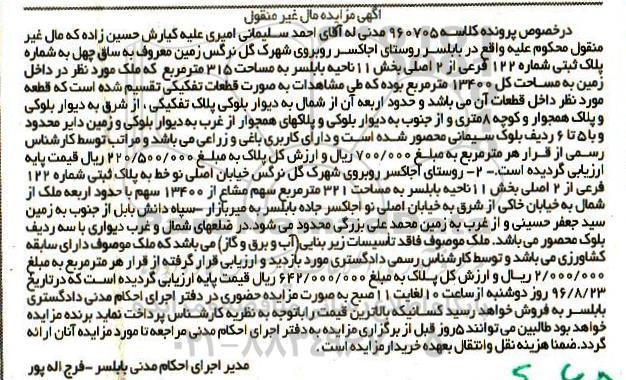 آگهی مزایده مال غیر منقول
درخصوص پرونده کلاسه ۹۶۰۷۰۵ مدنی له آقای احمد سلیمانی امیری علیه کیارش حسین زاده که مال غیر
منقول محکوم علیه واقع در بابلسر روستای آجاکسر روبروی شهرک گل نرگس زمین معروف به ساق چهل به شماره
پلاک ثبتی شماره ۱۲۲ فرعی از ۲ اصلی بخش ۱۱ ناحیه بابلسر به مساحت ۳۱۵ مترمربع که ملک مورد نظر در داخل
زمین به مساحت کل ۱۳۴۰۰ مترمربع بوده که طی مشاهدات به صورت قطعات تفکیکی تقسیم شده است که قطعه
مورد نظر داخل قطعات آن می باشد و حدود اربعه آن از شمال به دیوار بلوکی پلاک تفکیکی ، از شرق به دیوار بلوکی
و پلاک همجوار و کوچه ۸متری و از جنوب به دیوار بلوکی و پلاکهای همجوار از غرب به دیوار بلوکی و زمین دایر محدود
و با ۵ تا ۶ ردیف بلوک سیمانی محصور شده است و دارای کاربری باغی و زراعی می باشد و مراتب توسط کارشناس
رسمی از قرار هر مترمربع به مبلغ ۷۰۰/۰۰۰ ریال و ارزش کل پلاک به مبلغ ۲۲۰/۵۰۰/۰۰۰ ریال قیمت پایه
ارزیابی گردیده است.- ۲- روستای آجاکسر روبروی شهرک گل نرگس خیابان اصلی نو خط به پلاک ثبتی شماره ۱۲۲
فرعی از ۲ اصلی بخش ۱۱ ناحیه بابلسر به مساحت ۳۲۱ مترمربع سهم مشاع از ۱۳۴۰۰ سهم با حدود اربعه ملک از
شمال به خیابان خاکی از شرق به خیابان اصلی نو آجاکسر جاده بابلسر به میربازار -سپاه دانش بابل از جنوب به زمین
سید جعفر حسینی و از غرب به زمین محمد علی بزرگی محدود می شود.در ضلعهای شمال و غرب دیواری با سه ردیف
بلوک محصور می باشد. ملک موصوف فاقد تاسیسات زیر بنایی(آب و برق و گاز) می باشد که ملک موصوف دارای سابقه
کشاورزی می باشد و توسط کارشناس رسمی دادگستری مورد بازدید و ارزیابی قرار گرفته از قرار هر مترمربع به مبلغ
۲/۰۰۰/۰۰۰ ریال و ارزش کل پلاک به مبلغ ۶۴۲/۰۰۰/۰۰۰ ریال قیمت پایه ارزیابی گردیده است که درتاریخ
۹۶/۸/۲۳ روز دوشنبه ازساعت ۱۰ لغایت ۱۱ صبح به صورت مزایده حضوری در دفتر اجرای احکام مدنی دادگستری
بابلسر به فروش خواهد رسید کسانیکه بالاترین قیمت راباتوجه به نظریه کارشناس پرداخت نماید برنده مزایده
خواهد بود طالبین می توانند ۵روز قبل از برگزاری مزایده به دفتر اجرای احکام مدنی مراجعه تا مورد مزایده آنان ارائه
گردد.ضمنا هزینه نقل وانتقال بعهده خریدارمزایده است .
مدیر اجرای احکام مدنی بابلسر -فرج اله پور